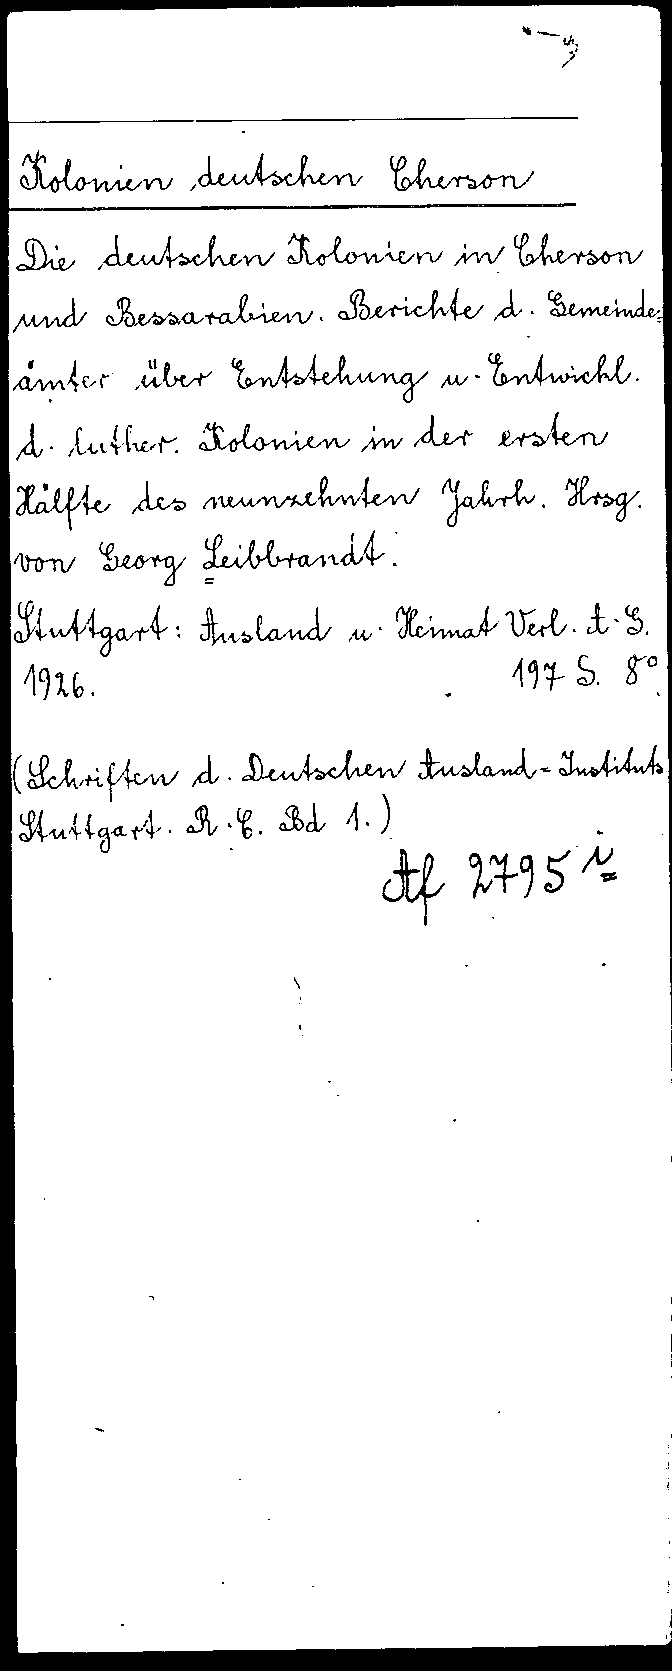 Kolonien deutschen Cherson
Die deutschen Kolonien in Cherson
und Bessarabien. Berichte d. Gemeinde=
ämter über Entstehung u. Entwickl.
d. luther. Kolonien in der ersten
Hälfte des neunzehnten Jahrh. Hrsg.
von Georg Leibbrandt.
Stuttgart: Ausland u. Heimat Verl. A.G.
1926. 197 S. 8°
(Schriften d. Deutschen Ausland=Instituts
Stuttgart. R. C. Bd 1.)
Af 2795 i